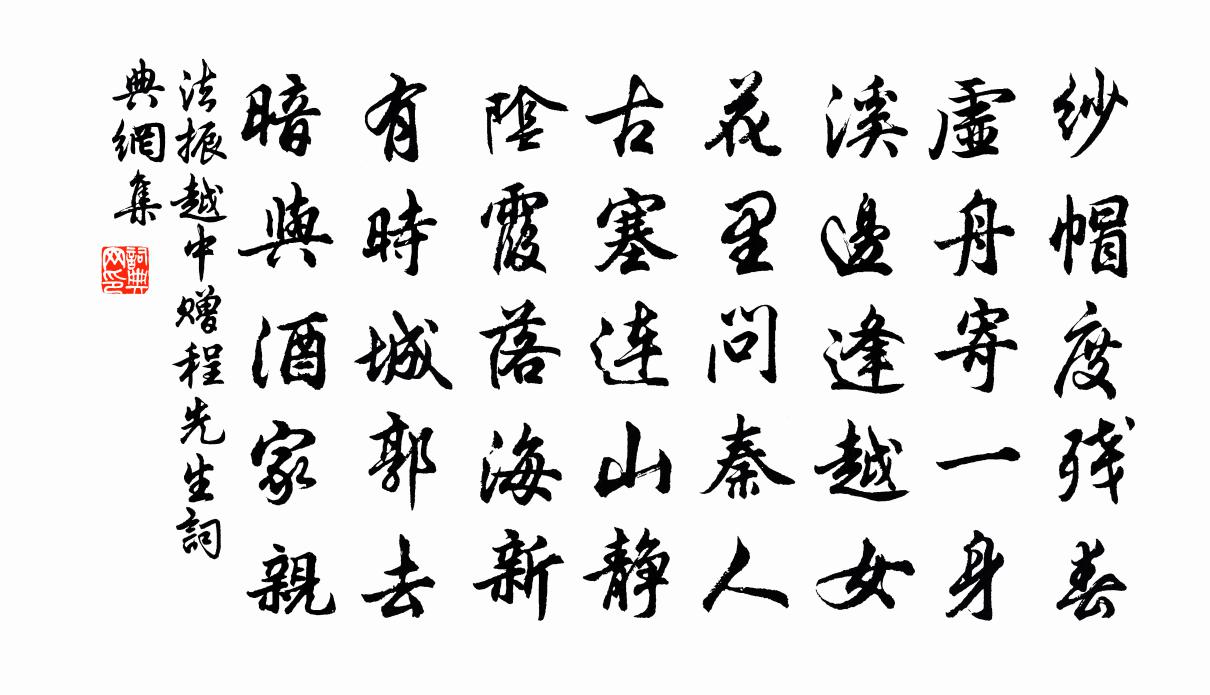 纱帽度残春
虚舟寄一身
溪邊逢越女
花里问秦人
古塞连山静
陰霞落海新
有時城郭去
暗與酒家親
法振越中赠程先生詞
典網集
詞典
网印